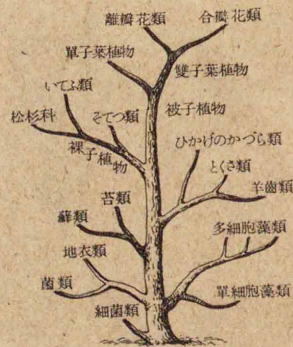 離瓣花類
合瓣花類
單子葉植物
雙子葉植物
いてふ類
被子植物
松杉科
そてつ類
裸子植物
ひかげのかづら類
とくさ類
羊齒類
苔類
蘚類
多細胞藻類
地衣類
菌類
單細胞藻類
細菌類